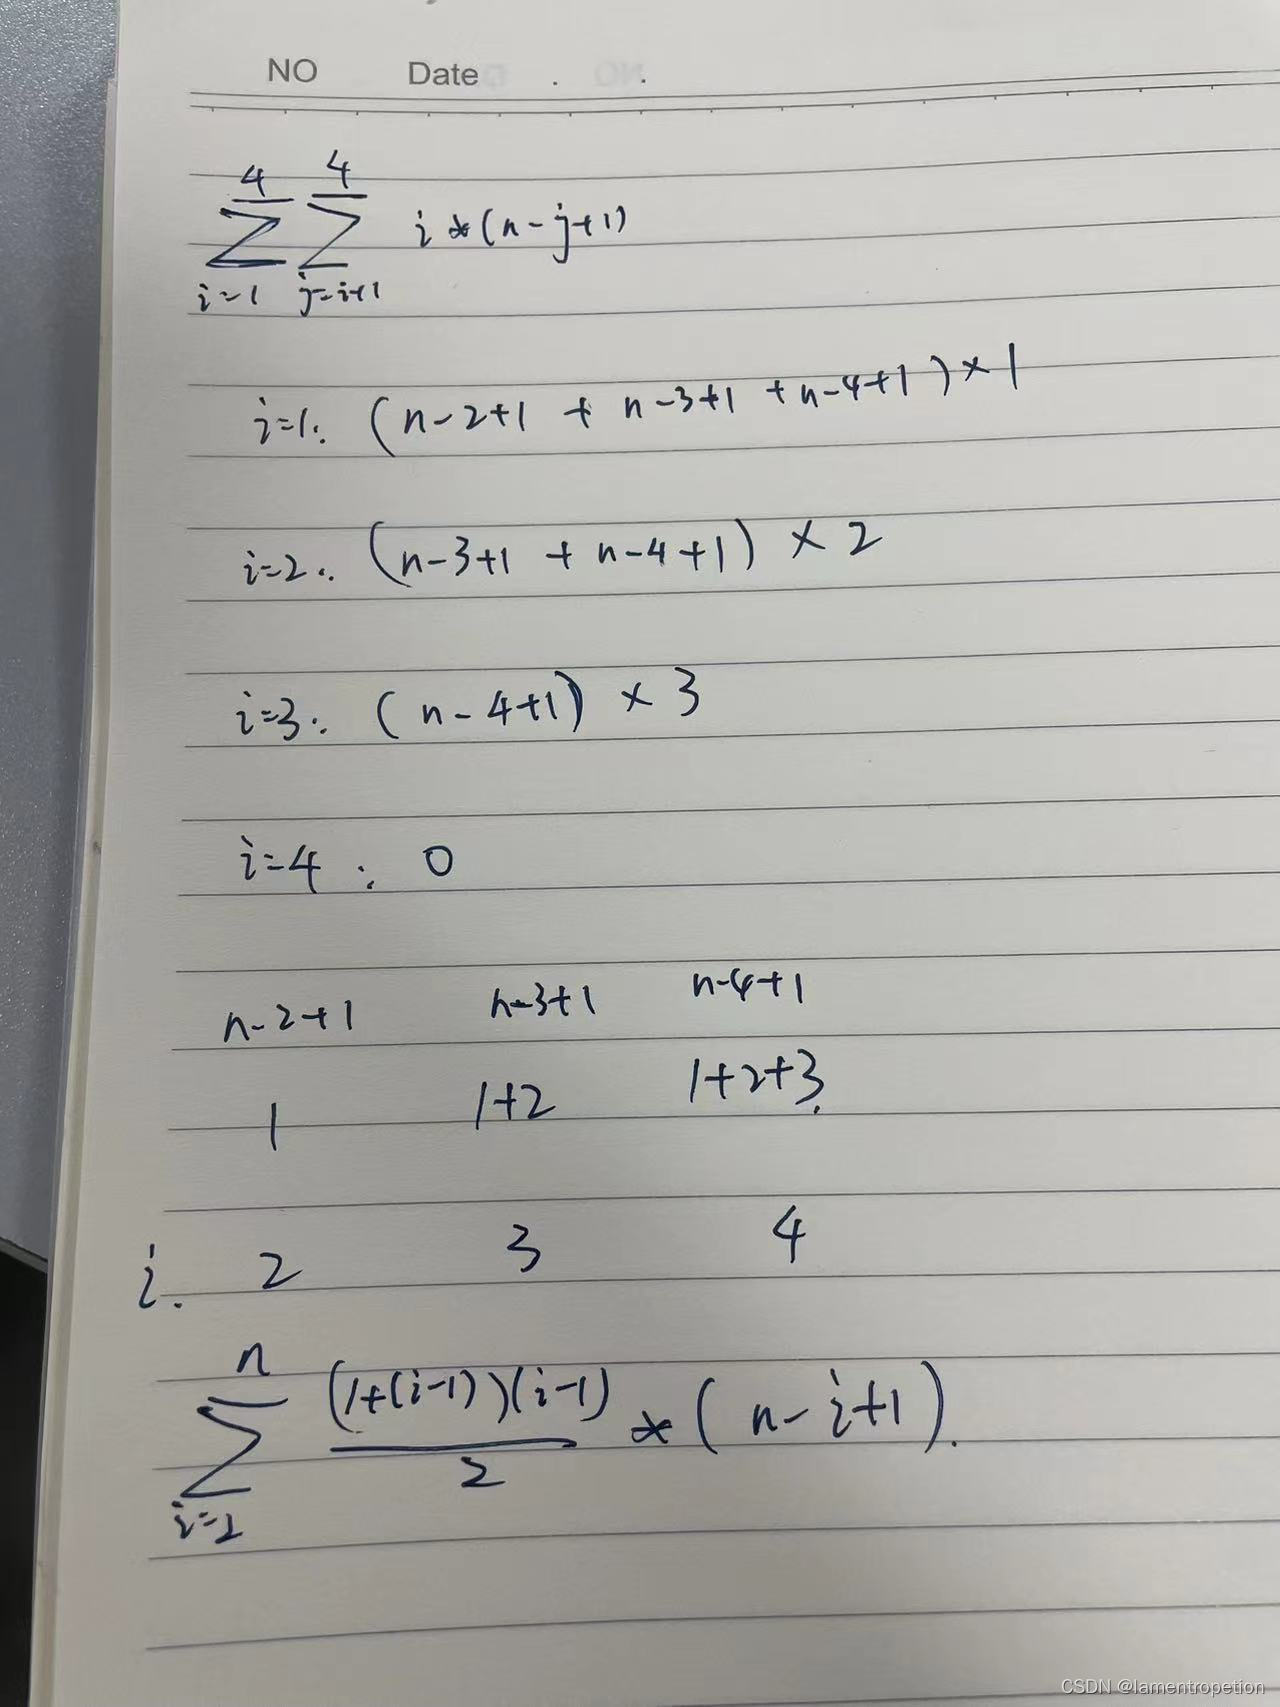 NO Date . .
4 4
∑ ∑ i * (n-j+1)
i=1 j=i+1
i=1: (n-2+1 + n-3+1 + n-4+1) × 1
i=2: (n-3+1 + n-4+1) × 2
i=3: (n-4+1) × 3
i=4: 0
n-2+1 n-3+1 n-4+1
1 1+2 1+2+3.
i. 2 3 4
n
∑ (1+(i-1))(i-1) / 2 * (n-i+1).
i=2
CSDN @lamentropetion